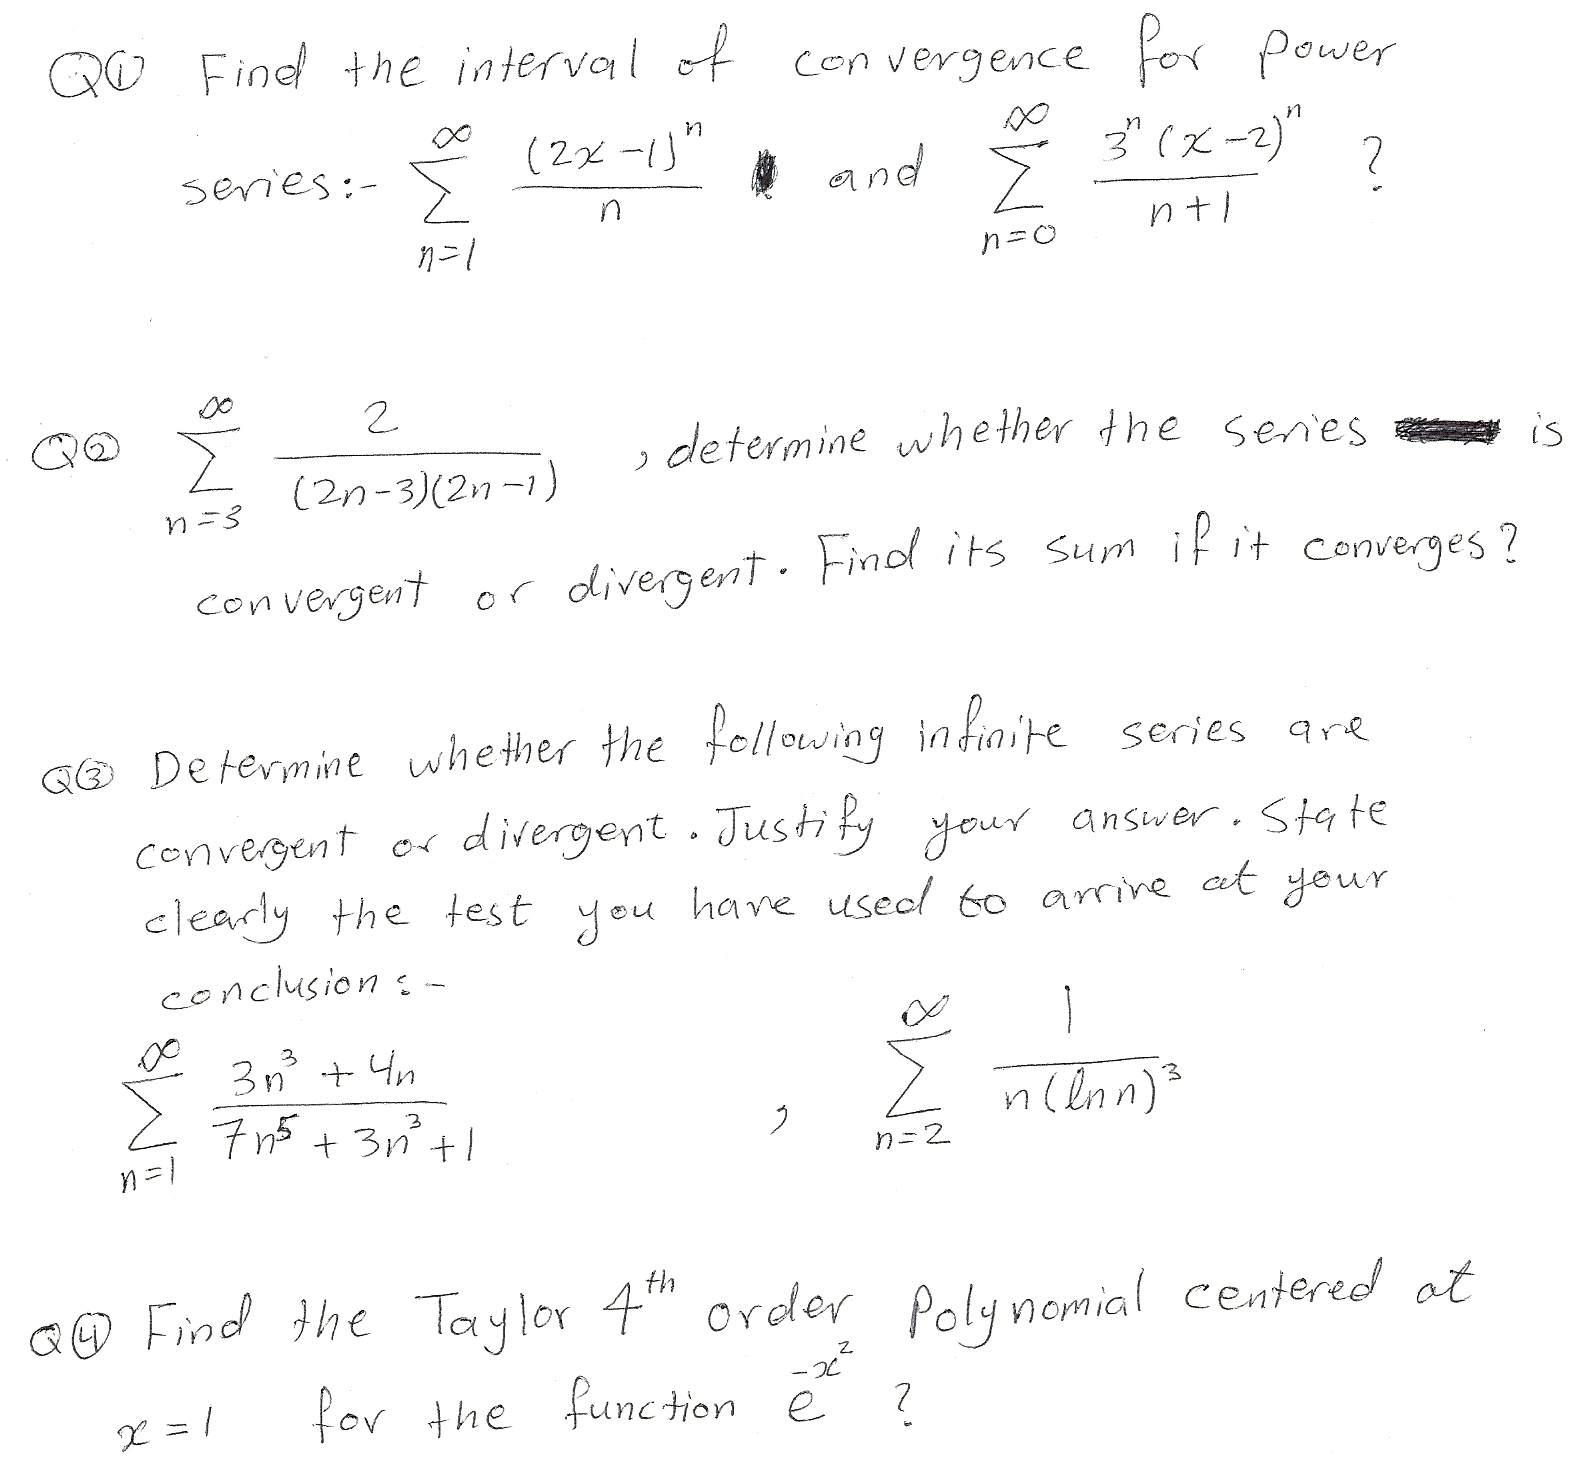 Q① Find the interval of convergence for power
series:- ∞ Σ n=1 (2x-1)ⁿ / n and ∞ Σ n=0 3ⁿ(x-2)ⁿ / n+1 ?
Q② ∞ Σ n=3 2 / (2n-3)(2n-1) , determine whether the series is
convergent or divergent. Find its sum if it converges?
Q③ Determine whether the following infinite series are
convergent or divergent. Justify your answer. State
clearly the test you have used to arrive at your
conclusion:-
∞ Σ n=1 3n³ + 4n / 7n⁵ + 3n³ + 1 , ∞ Σ n=2 1 / n(ln n)³
Q④ Find the Taylor 4ᵗʰ order Polynomial centered at
x=1 for the function e^-x² ?